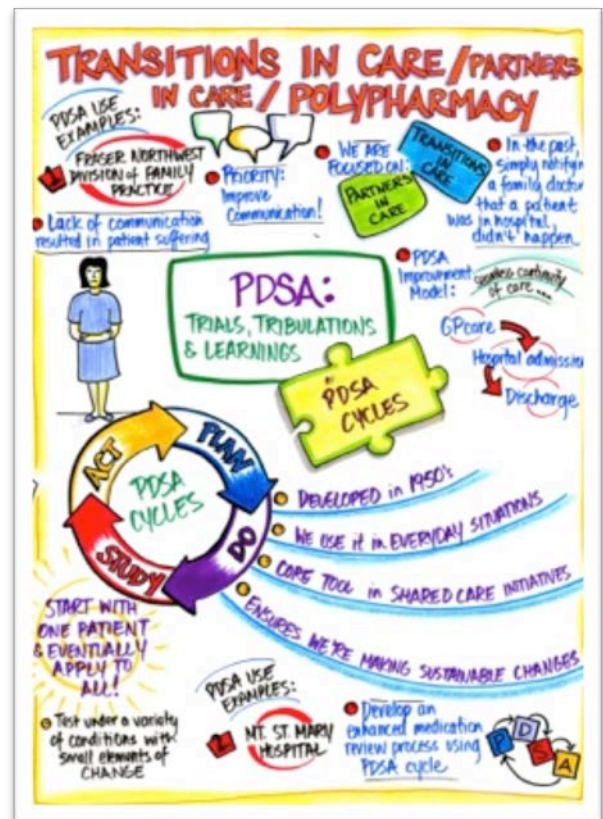 TRANSITIONS IN CARE / PARTNERS
IN CARE / POLYPHARMACY
PDSA USE
EXAMPLES:
1
FRASER NORTHWEST
DIVISION of FAMILY
PRACTICE
Lack of communication
resulted in patient suffering
PRIORITY:
Improve
Communication!
WE ARE
FOCUSED ON:
TRANSITIONS
IN CARE
PARTNERS
IN CARE
In the past,
simply notifyin
a family doctor
that a patient
was in hospital,
didn't happen
PDSA:
TRIALS, TRIBULATIONS
& LEARNINGS
PDSA
CYCLES
PDSA
Improvement
Model:
seamless continuity
of care ...
GP care
Hospital admission
Discharge
ACT
PLAN
DO
STUDY
PDSA
CYCLES
DEVELOPED in 1950's
WE USE it in EVERYDAY SITUATIONS
CORE TOOL in SHARED CARE INITIATIVES
ENSURES WE'RE MAKING SUSTAINABLE CHANGES
START WITH
ONE PATIENT
& EVENTUALLY
APPLY TO
ALL!
Test under a variety
of conditions with
small elements of
CHANGE
PDSA USE
EXAMPLES:
2
MT. ST. MARY
HOSPITAL
Develop an
enhanced medication
review process using
PDSA cycle
P
D
S
A